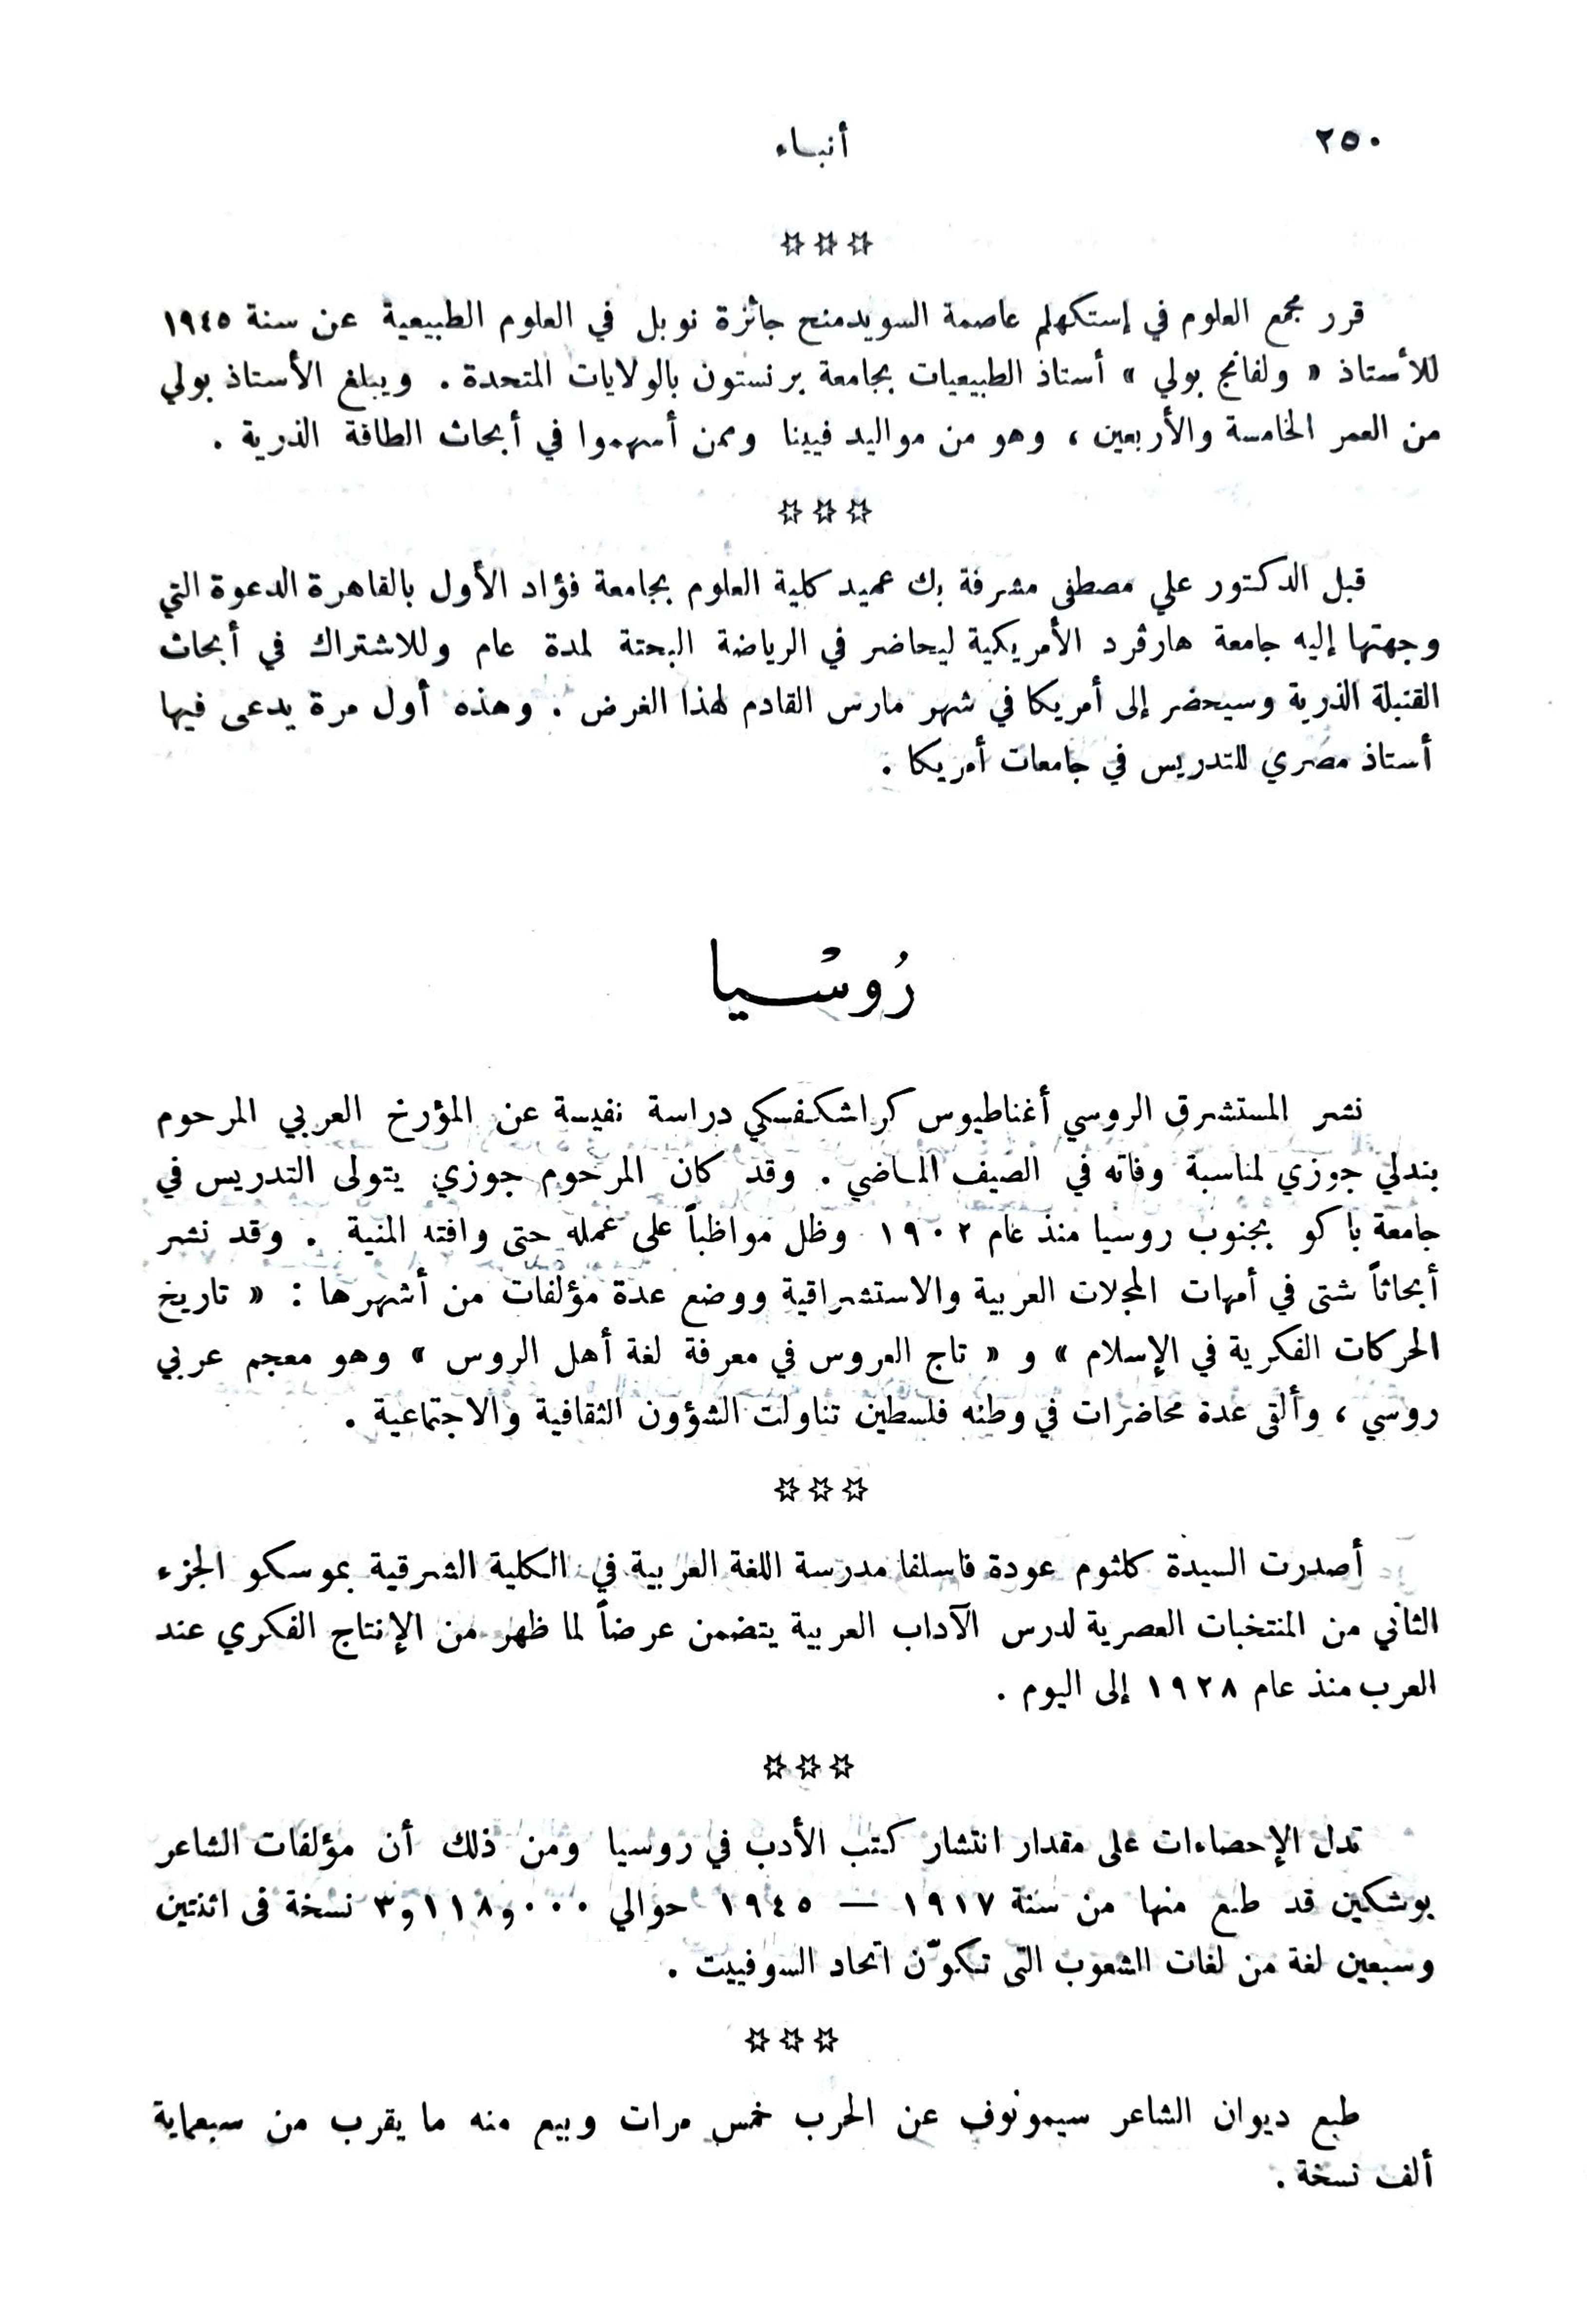 ٢٥٠
أنباء
☆☆☆
قرر مجمع العلوم في إستكهلم عاصمة السويدمنح جائزة نوبل في العلوم الطبيعية عن سنة ١٩٤٥
للأستاذ « ولفانج بولي » أستاذ الطبيعيات بجامعة برنستون بالولايات المتحدة . ويبلغ الأستاذ بولي
من العمر الخامسة والأربعين ، وهو من مواليد فيينا وممن أسهموا في أبحاث الطاقة الذرية .
☆☆☆
قبل الدكتور علي مصطفى مشرفة بك عميد كلية العلوم بجامعة فؤاد الأول بالقاهرة الدعوة التي
وجهتها إليه جامعة هارڤرد الأمريكية ليحاضر في الرياضة البحتة لمدة عام وللاشتراك في أبحاث
القنبلة الذرية وسيحضر إلى أمريكا في شهر مارس القادم لهذا الغرض . وهذه أول مرة يدعى فيها
أستاذ مصري للتدريس في جامعات أمريكا .
رُوسْيا
نشر المستشرق الروسي أغناطيوس كراشكفسكي دراسة نفيسة عن المؤرخ العربي المرحوم
بندلي جوزي لمناسبة وفاته في الصيف الماضي . وقد كان المرحوم جوزي يتولى التدريس في
جامعة باكو بجنوب روسيا منذ عام ١٩٠٢ وظل مواظباً على عمله حتى وافته المنية . وقد نشر
أبحاثاً شتى في أمهات المجلات العربية والاستشراقية ووضع عدة مؤلفات من أشهرها : « تاريخ
الحركات الفكرية في الإسلام » و « تاج العروس في معرفة لغة أهل الروس » وهو معجم عربي
روسي ، وألقى عدة محاضرات في وطنه فلسطين تناولت الشؤون الثقافية والاجتماعية .
☆☆☆
أصدرت السيدة كلثوم عودة فاسلفا مدرسة اللغة العربية في الكلية الشرقية بموسكو الجزء
الثاني من المنتخبات العصرية لدرس الآداب العربية يتضمن عرضاً لما ظهر من الإنتاج الفكري عند
العرب منذ عام ١٩٢٨ إلى اليوم .
☆☆☆
تدل الإحصاءات على مقدار انتشار كتب الأدب في روسيا ومن ذلك أن مؤلفات الشاعر
بوشكين قد طبع منها من سنة ١٩١٧ — ١٩٤٥ حوالي ٣و١١٨و٠٠٠ نسخة فى اثنتين
وسبعين لغة من لغات الشعوب التى تكوّن اتحاد السوفييت .
☆☆☆
طبع ديوان الشاعر سيمونوف عن الحرب خمس مرات وبيع منه ما يقرب من سبعماية
ألف نسخة .